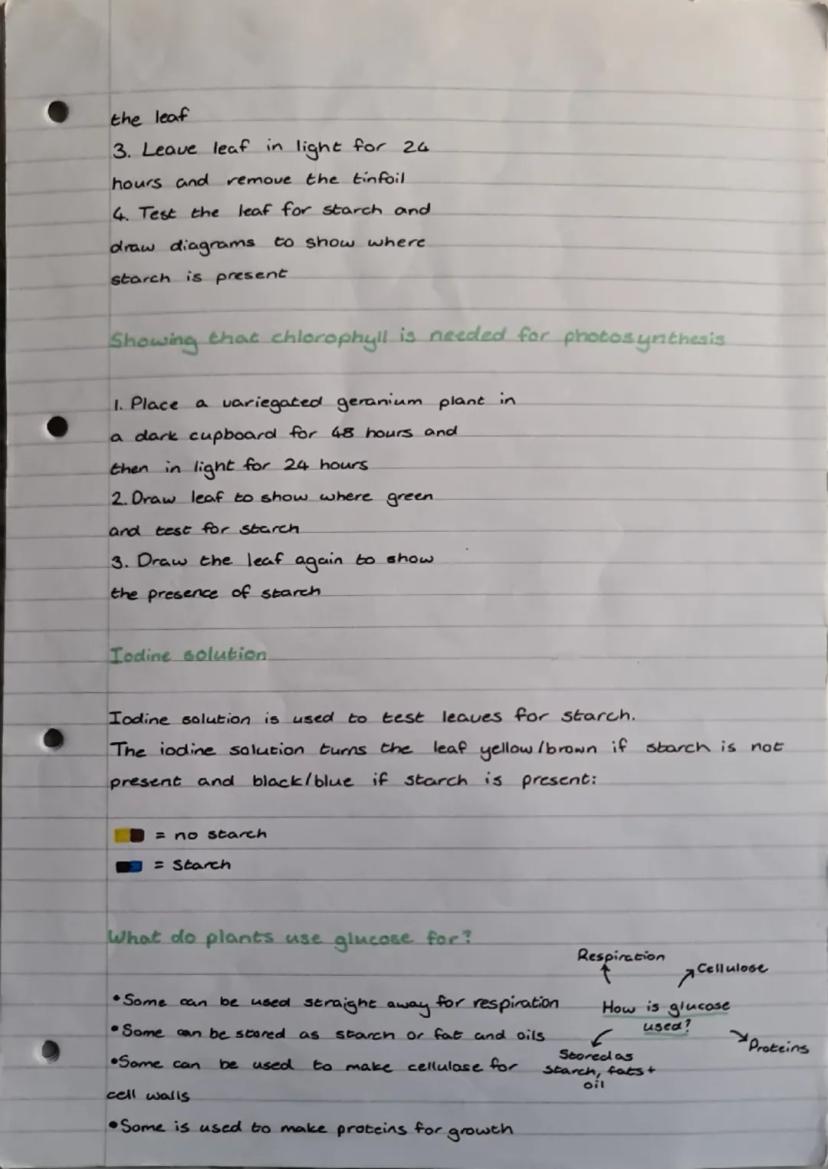 the leaf
3. Leave leaf in light for 24
hours and remove the tinfoil
4. Test the leaf for starch and
draw diagrams to show where
starch is present
Showing that chlorophyll is needed for photosynthesis
1. Place a variegated geranium plant in
a dark cupboard for 48 hours and
then in light for 24 hours
2. Draw leaf to show where green
and test for starch
3. Draw the leaf again to show
the presence of starch
Iodine solution
Iodine solution is used to test leaves for starch.
The iodine solution turns the leaf yellow/brown if starch is not
present and black/blue if starch is present:
= no starch
= Starch
What do plants use glucose for?
•Some can be used straight away for respiration
•Some can be stored as starch or fat and oils
•Some can be used to make cellulose for
cell walls
•Some is used to make proteins for growth
Respiration
Cellulose
How is glucose
used?
Proteins
Stored as
starch, fats +
oil